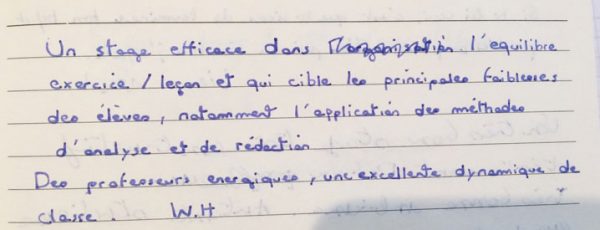 Un stage efficace dans l'equilibre
exercice / leçon et qui cible les principales faiblesses
des élèves, notamment l'application des méthodes
d'analyse et de rédaction
Des professeurs energiques, une excellente dynamique de
classe. W.H